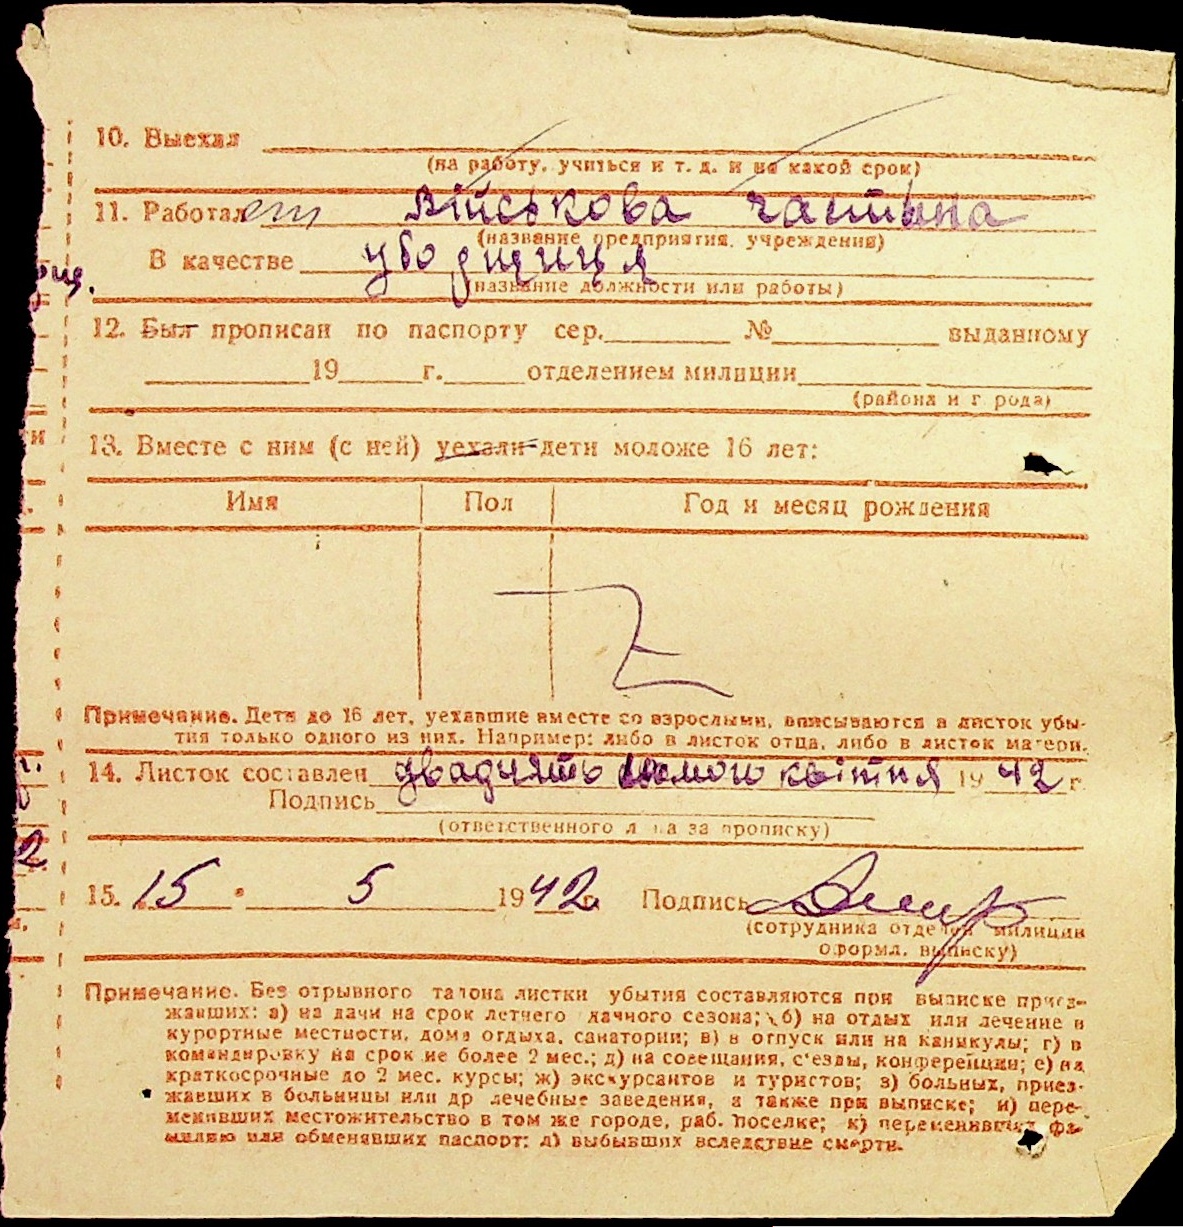 10. Выехал
(на работу, учиться и т. д. и на какой срок)
11. Работает військова частина
(название предприятия, учреждения)
В качестве уборщиця
(название должности или работы)
12. Был прописан по паспорту сер. № выданному
19 г. отделением милиции
(района и города)
13. Вместе с ним (с ней) уехали дети моложе 16 лет:
Имя Пол Год и месяц рождения
Примечание. Дети до 16 лет, уехавшие вместе со взрослыми, вписываются в листок убы-
тия только одного из них. Например: либо в листок отца, либо в листок матери.
14. Листок составлен двадцять сьомого квітня 1942 г.
Подпись
(ответственного лица за прописку)
15. 15 • 5 1942 г. Подпись
(сотрудника отделен. милиции
оформл. выписку)
Примечание. Без отрывного талона листки убытия составляются при выписке приез-
жавших: а) на дачи на срок летнего дачного сезона; б) на отдых или лечение в
курортные местности, дома отдыха, санатории; в) в отпуск или на каникулы; г) в
командировку на срок не более 2 мес.; д) на совещания, с'езды, конференции; е) на
краткосрочные до 2 мес. курсы; ж) экскурсантов и туристов; з) больных, приез-
жавших в больницы или др лечебные заведения, а также при выписке; и) пере-
менивших местожительство в том же городе, раб. поселке; к) переменивших фа-
милию или обменявших паспорт; л) выбывших вследствие смерти.